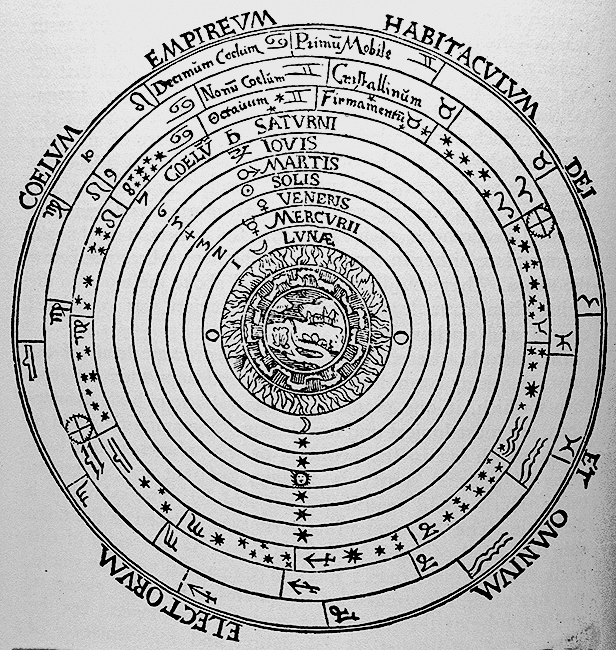 COELVM EMPIREVM HABITACVLVM DEI ET OMNIVM ELECTORVM
Decimum Coelum ♋ Primũ Mobile ♊
Nonũ Coelum ♊ Cristallinum ♉
Octauum ♊ Firmamentũ ♉
COELV ♄ SATVRNI
♃ IOVIS
♂ MARTIS
☉ SOLIS
♀ VENERIS
☿ MERCVRII
☽ LVNÆ
9
8
7
6
5
4
3
2
1